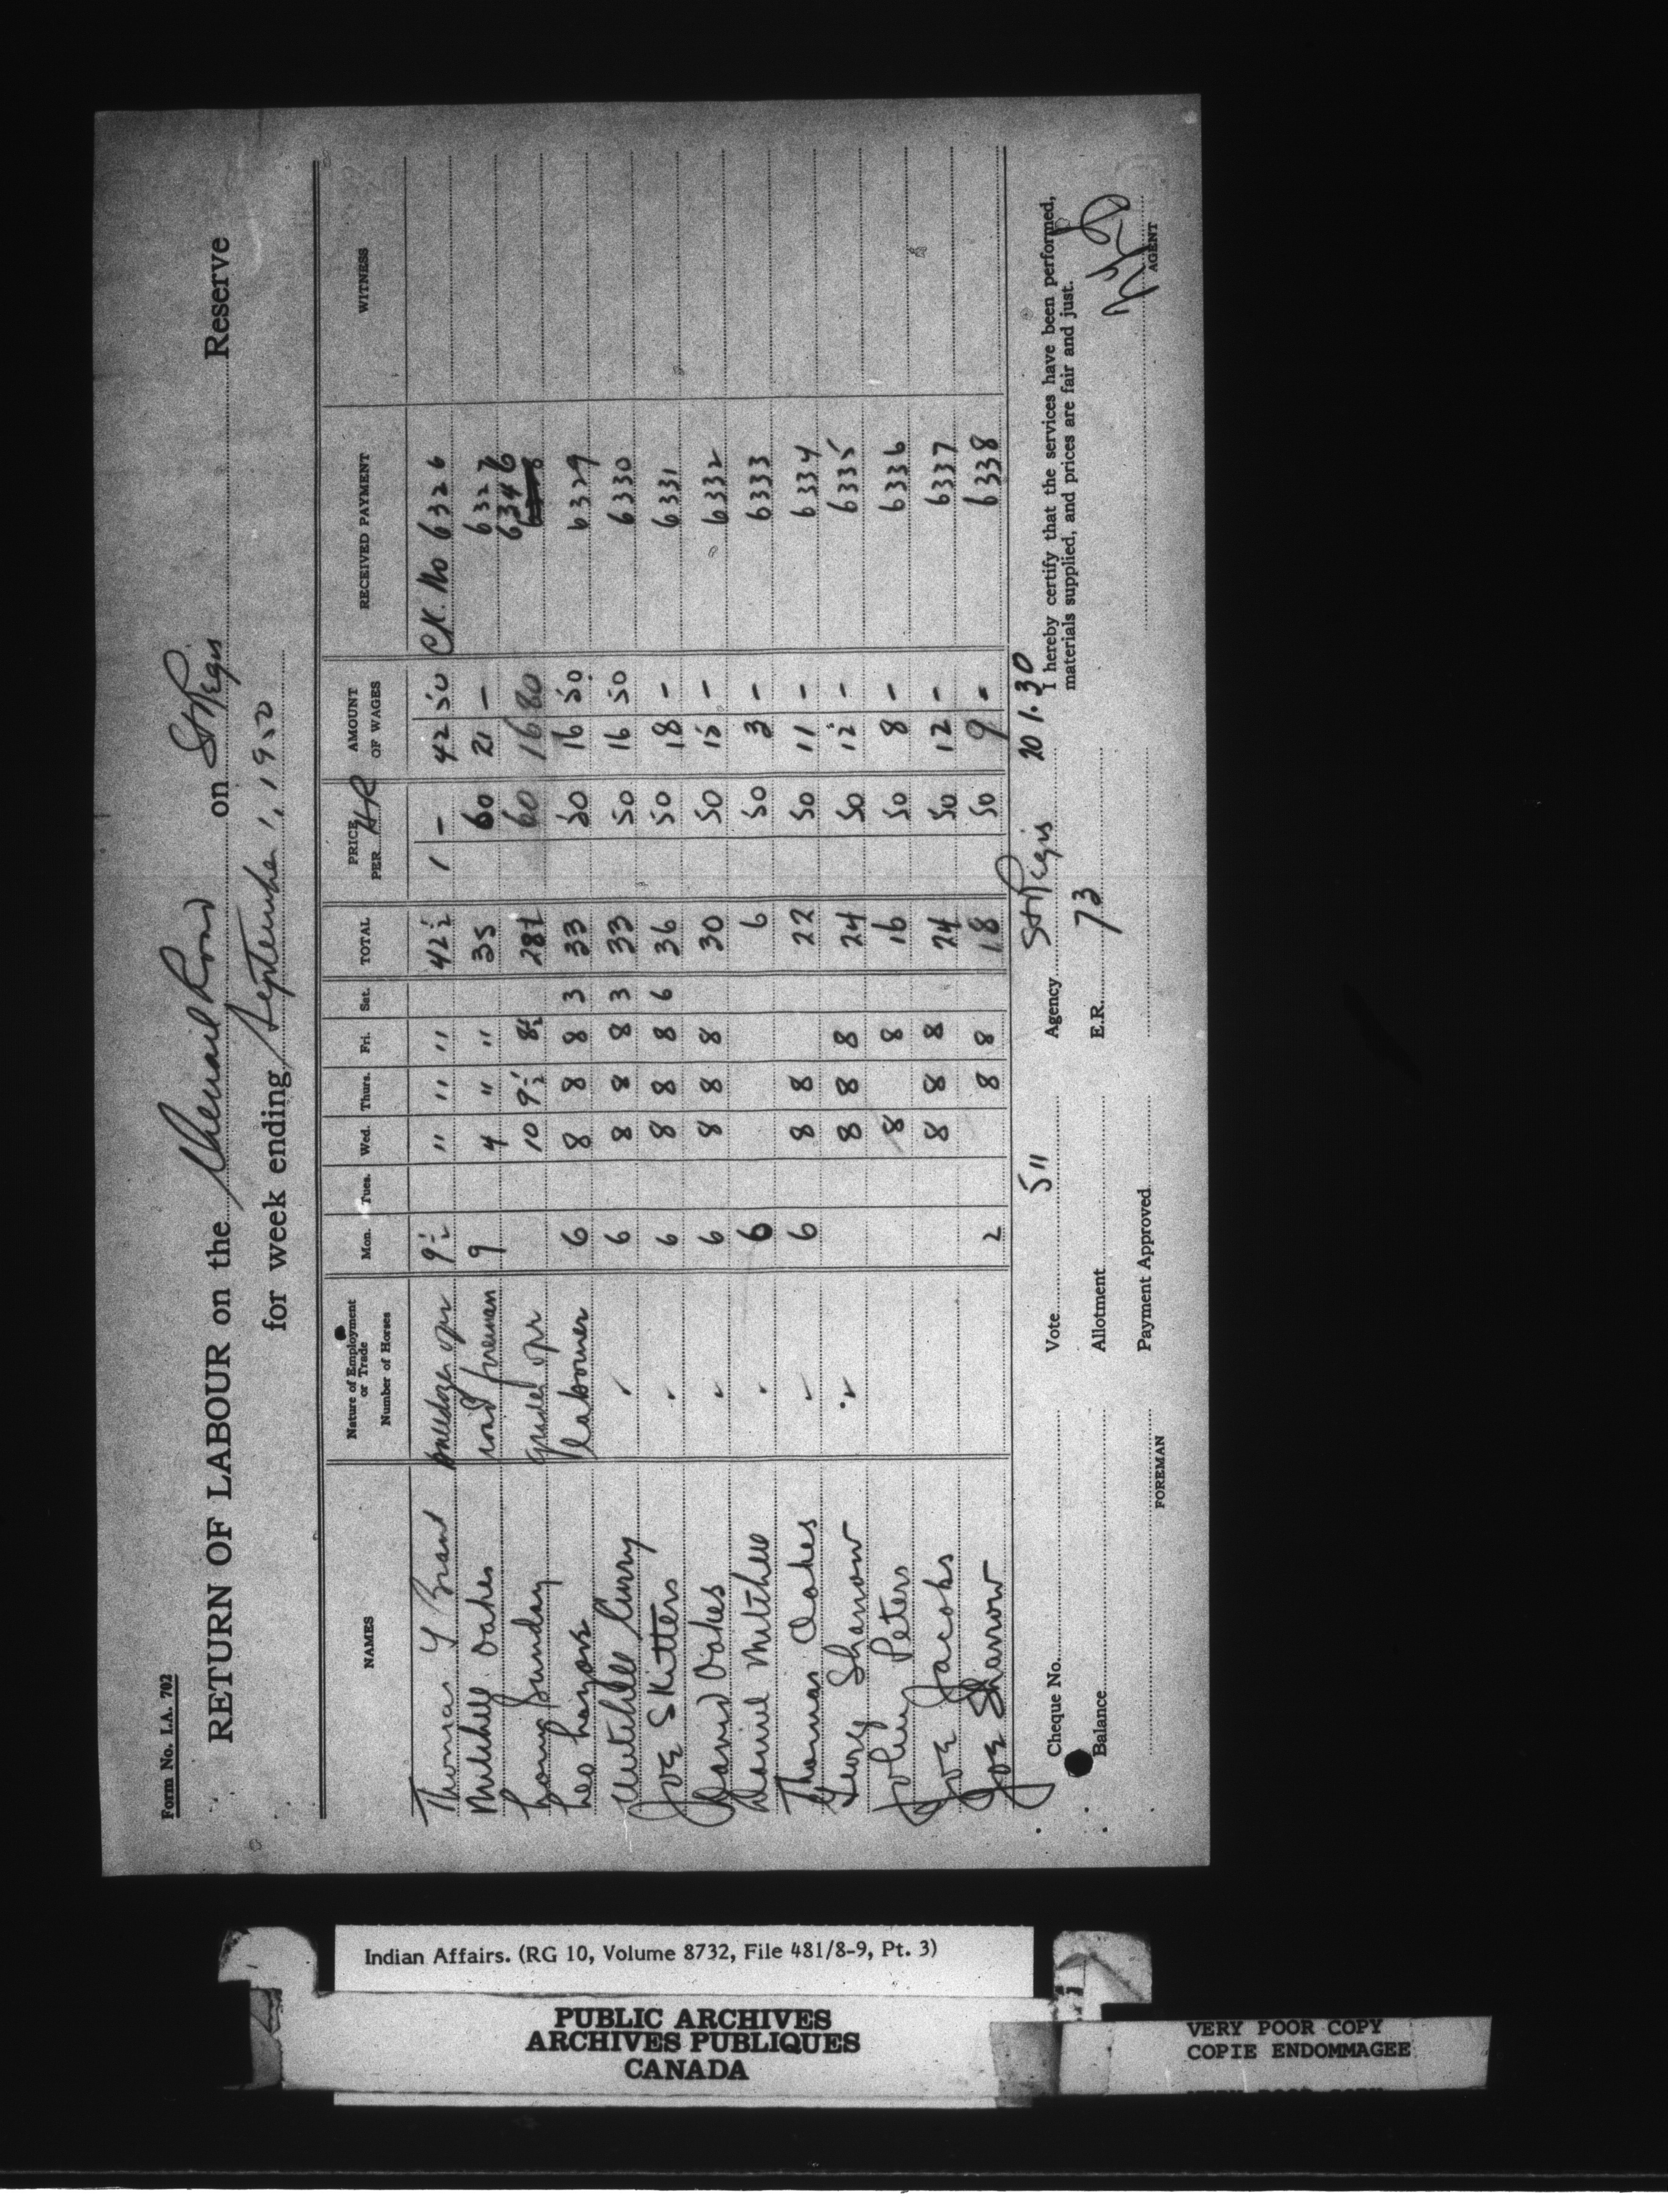 Form No. I.A. 702
RETURN OF LABOUR on the Chenail Road on St Regis Reserve
for week ending September 1, 1950
NAMES Nature of Employment or Trade Number of Horses Mon. Tues. Wed. Thurs. Fri. Sat. TOTAL PRICE PER HR AMOUNT OF WAGES RECEIVED PAYMENT WITNESS
Thomas Y Brant bulldozer opr 9½ " " " 42½ 1 - 42 50 CK. No 6326
Mitchell Oakes road foreman 9 4 " " 35 60 21 - 6327
Louis Sunday grader opr 10 9½ 8½ 28 60 16 80 6346
Leo Lazore labourer 6 8 8 8 3 33 50 16 50 6329
Mitchell Curry " 6 8 8 8 3 33 50 16 50 6330
Joe Skitters " 6 8 8 8 6 36 50 18 - 6331
David Oakes " 6 8 8 8 30 50 15 - 6332
Daniel Mitchell " 6 6 50 3 - 6333
Thomas Oakes " 6 8 8 22 50 11 - 6334
George Sharrow " 8 8 8 24 50 12 - 6335
John Peters 8 8 16 50 8 - 6336
Joe Jacobs 8 8 8 24 50 12 - 6337
Joe Sharrow 2 8 8 18 50 9 - 6338
Cheque No. Vote 511 Agency St Regis 201.30 I hereby certify that the services have been performed,
materials supplied, and prices are fair and just.
Balance Allotment E.R. 73
Payment Approved
FOREMAN AGENT
Indian Affairs. (RG 10, Volume 8732, File 481/8-9, Pt. 3)
PUBLIC ARCHIVES
ARCHIVES PUBLIQUES
CANADA
VERY POOR COPY
COPIE ENDOMMAGEE